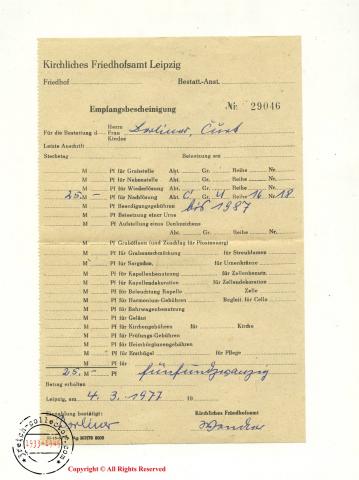 Kirchliches Friedhofsamt Leipzig
Friedhof Bestatt.-Anst.
Empfangsbescheinigung Nr. 29046
Für die Bestattung d Herrn Frau Kindes Berliner, Curt
Letzte Anschrift
Sterbetag Beisetzung am
M Pf für Grabstelle Abt. Gr. Reihe Nr.
M Pf für Nebenstelle Abt. Gr. Reihe Nr.
M Pf für Wiederlösung Abt. Gr. Reihe Nr.
25,- M Pf für Nachlösung Abt. C Gr. U Reihe 16 Nr. 18
M Pf Beerdigungsgebühren bis 1987
M Pf Beisetzung einer Urne
M Pf Aufstellung eines Denkzeichens
Abt. Gr. Reihe Nr.
M Pf
M Pf für Grabausschmückung für Streublumen
M Pf für Sargträger für Urnenkränze
M Pf für Kapellenbenutzung für Zellenbenutz.
M Pf für Kapellendekoration für Zellendekoration
M Pf für Beleuchtung Kapelle Zelle
M Pf für Harmonium-Gebühren Begleit. für Cello
M Pf für Bahrwagenbenutzung
M Pf für Geläut
M Pf für Kirchengebühren für Kirche
M Pf für Prüfungs-Gebühren
M Pf für Heimbürginnengebühr
M Pf für Ersthügel für Pflege
M Pf für
25,- M Pf fünfundzwanzig
Betrag erhalten
Leipzig, am 4. 3. 1977 19
Einzahlung bestätigt: Kirchliches Friedhofsamt
Berliner
3reich-collector.com
1933-1945
Copyright © All Rights Reserved